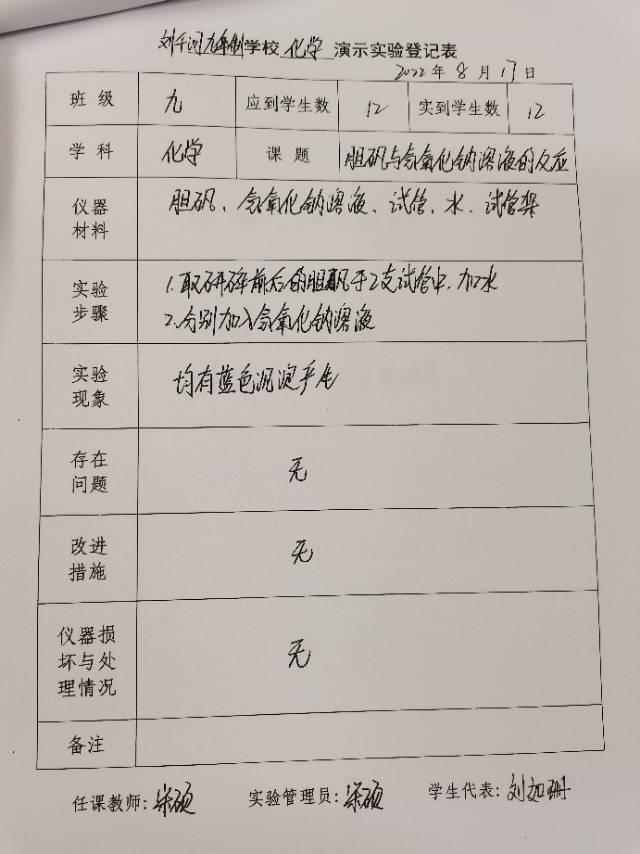 刘千河九年制学校 化学 演示实验登记表
2022年8月17日
班级 九 应到学生数 12 实到学生数 12
学科 化学 课题 胆矾与氢氧化钠溶液的反应
仪器材料 胆矾、氢氧化钠溶液、试管、水、试管架
实验步骤 1.取研碎前后的胆矾于2支试管中,加水
2.分别加入氢氧化钠溶液
实验现象 均有蓝色沉淀产生
存在问题 无
改进措施 无
仪器损坏与处理情况 无
备注
任课教师:梁硕 实验管理员:梁硕 学生代表:刘如珊